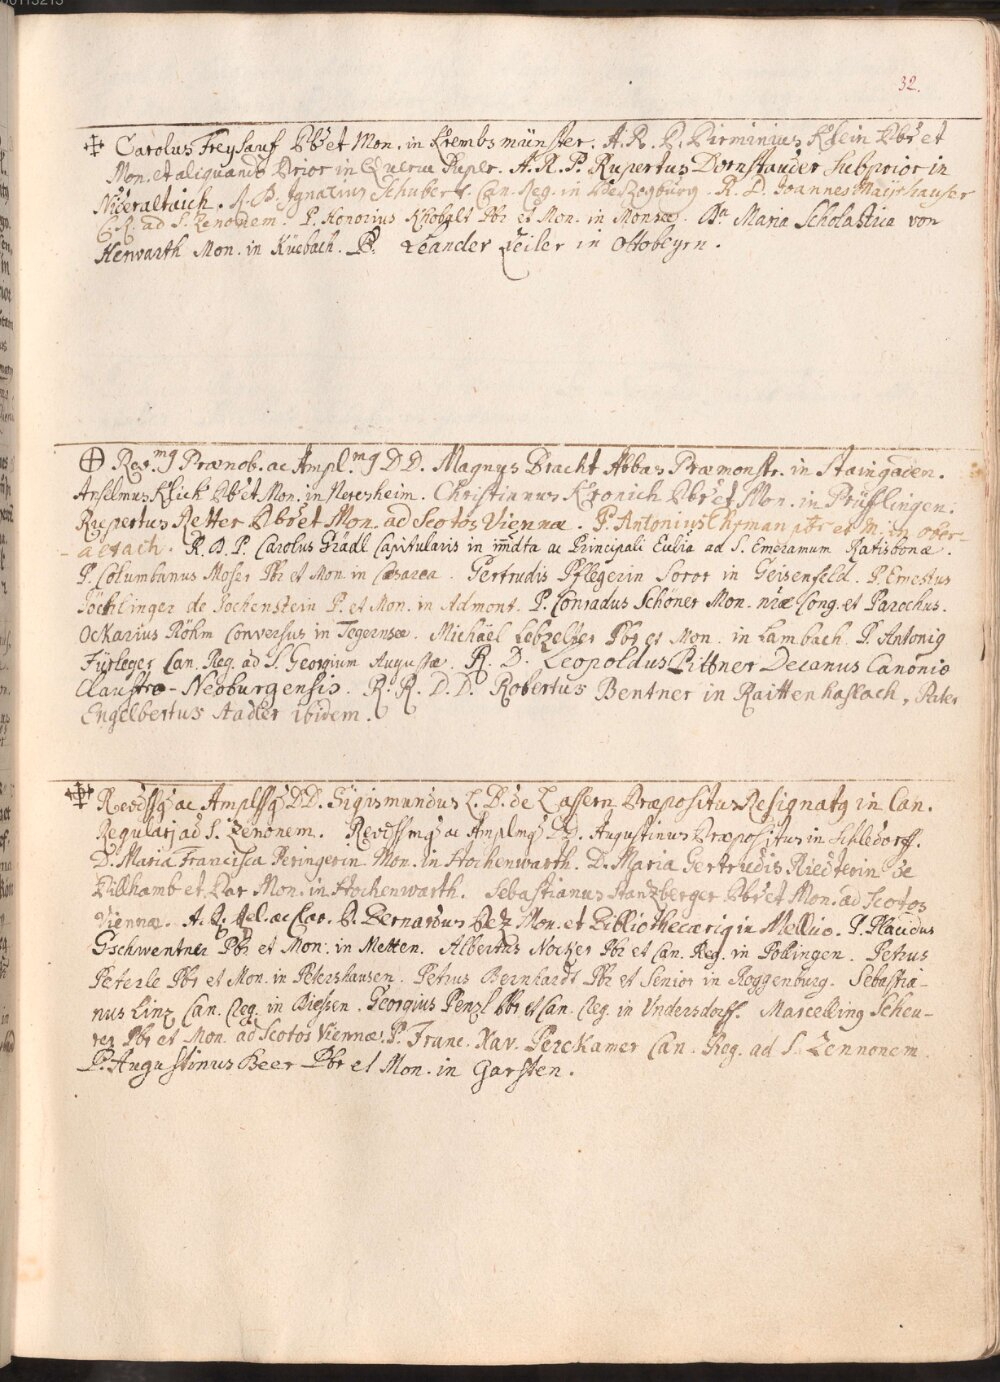 32.
Carolus Freysauf Pbr et Mon. in Krembsmünster. A. R. P. Pirminius Klein Pbr et
Mon. et aliquando Prior in Querna Super. A. R. P. Rupertus Dornstauder Subprior in
Nideraltaich. R. D. Ignatius Schubert. Can. Reg. in R. D. Joannes Mayrhauser
C. R. ad S. Zenonem. P. Honorius Knobalt Pbr et Mon. in Monsee. Da Maria Scholastica von
Herwarth Mon. in Küebach. P. Leander Zeiler in Ottobeyrn.
Revmg Prænob. ac Ampl.mg DD. Magnus Bracht Abbas Præmonstr. in Staingaden.
Anselmus Klick Pbr et Mon. in Neresheim. Christiannus Kronich Pbr et Mon. in Prüfflingen.
Rupertus Retter Pbr et Mon. ad Scotos Viennæ. P. Antonius Thyman pbr et M. in ober-
altach. R. D. P. Carolus Grädl Capitularis in im̄dta ac Principali Eccl̄ia ad S. Emeramum Ratisbonæ.
P. Columbanus Moser Pbr et Mon in Cæsarea. Gertrudis Pflegerin Soror in Geisenfeld. P. Ernestus
Jöchlinger de Jochenstein P. et Mon. in Admont. P. Conradus Schöner Mon. nræ Cong. et Parochus.
Ockarius Röhm Conversus in Tegernsee. Michael Lebzelter Pbr et Mon. in Lambach. P. Antonig
Fürleger Can. Reg. ad S. Georgium Augustæ. R. D. Leopoldus Pittner Decanus Canonic
Claustro-Neoburgensis. R. R. D. D. Robertus Bentner in Raittenhaslach, Pater
Engelbertus Aadler ibidem.
Revdssg ac Amplssg DD. Sigismundus L. B. de Zassern Præpositus Resignatg in Can.
Regulari ad S. Zenonem. Revdssmg ac Amplmg DD. Augustinus Præpositus in Schledorff.
D. Maria Francisca Peringerin Mon. in Hochenwarth. D. Maria Gertrudis Riedterin de
Pillhamb et Par Mon. in Hochenwarth. Sebastianus Stanzberger Pbr et Mon. ad Scotos
Viennæ. A. R. Rel. ac Clar. P. Bernardus Pez Mon. et Bibliothecarig in Mellic. P. Placidus
Gschwentner Pbr et Mon. in Metten. Albertus Nocker Pbr et Can. Reg. in Pollingen. Petrus
Peterle Pbr et Mon. in Petershausen. Petrus Bernhardt Pbr et Senior in Roggenburg. Sebastia-
nus Linz Can. Reg. in Diessen. Georgius Penzl Pbr et Can. Reg. in Undersdorff. Marcelling Scheu-
rer Pbr et Mon. ad Scotos Viennæ. P. Franc. Xav. Perckamer Can. Reg. ad S. Zennonem.
P. Augustinus Beer Pbr et Mon. in Garsten.